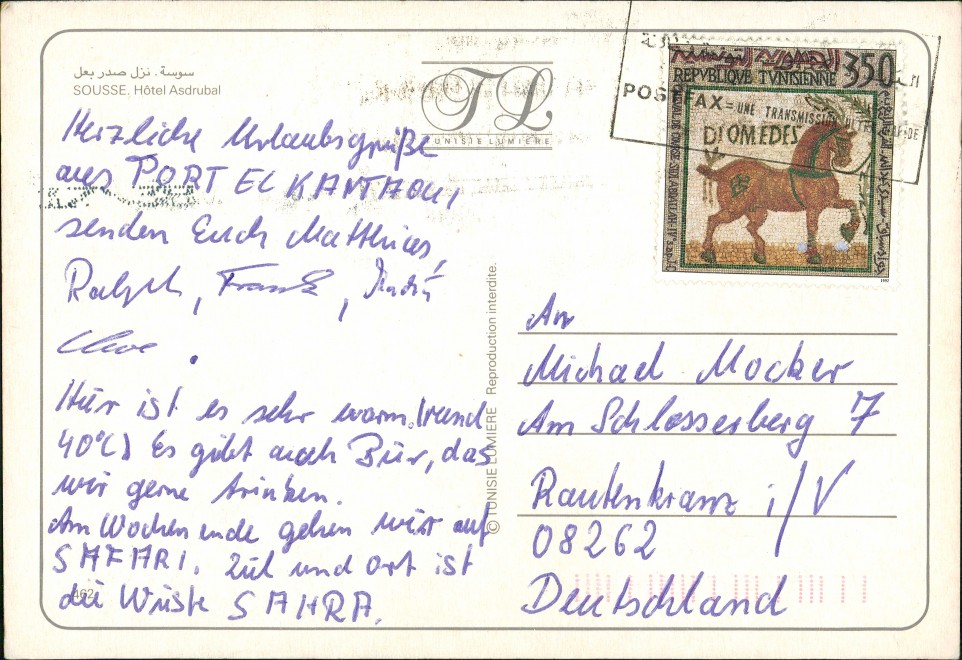 سوسة . نزل صدر بعل
SOUSSE. Hôtel Asdrubal
TL
TUNISIE LUMIERE
Herzliche Urlaubsgrüße
aus PORT EL KANTAOUI
senden Euch Matthias,
Ralph, Frank,
Hier ist es sehr warm (rund
40°C) Es gibt auch Bier, das
wir gerne trinken.
Am Wochenende gehen wir auf
SAFARI. Ziel und Ort ist
die Wüste SAHRA.
462
© TUNISIE LUMIERE Reproduction interdite.
الجمهورية التونسية
350
REPVBLIQVE TVNISIENNE
DIOMEDES
1992
POSTFAX = UNE TRANSMISSION
An
Michael Mocker
Am Schlosserberg 7
Rautenkranz i/V
08262
Deutschland